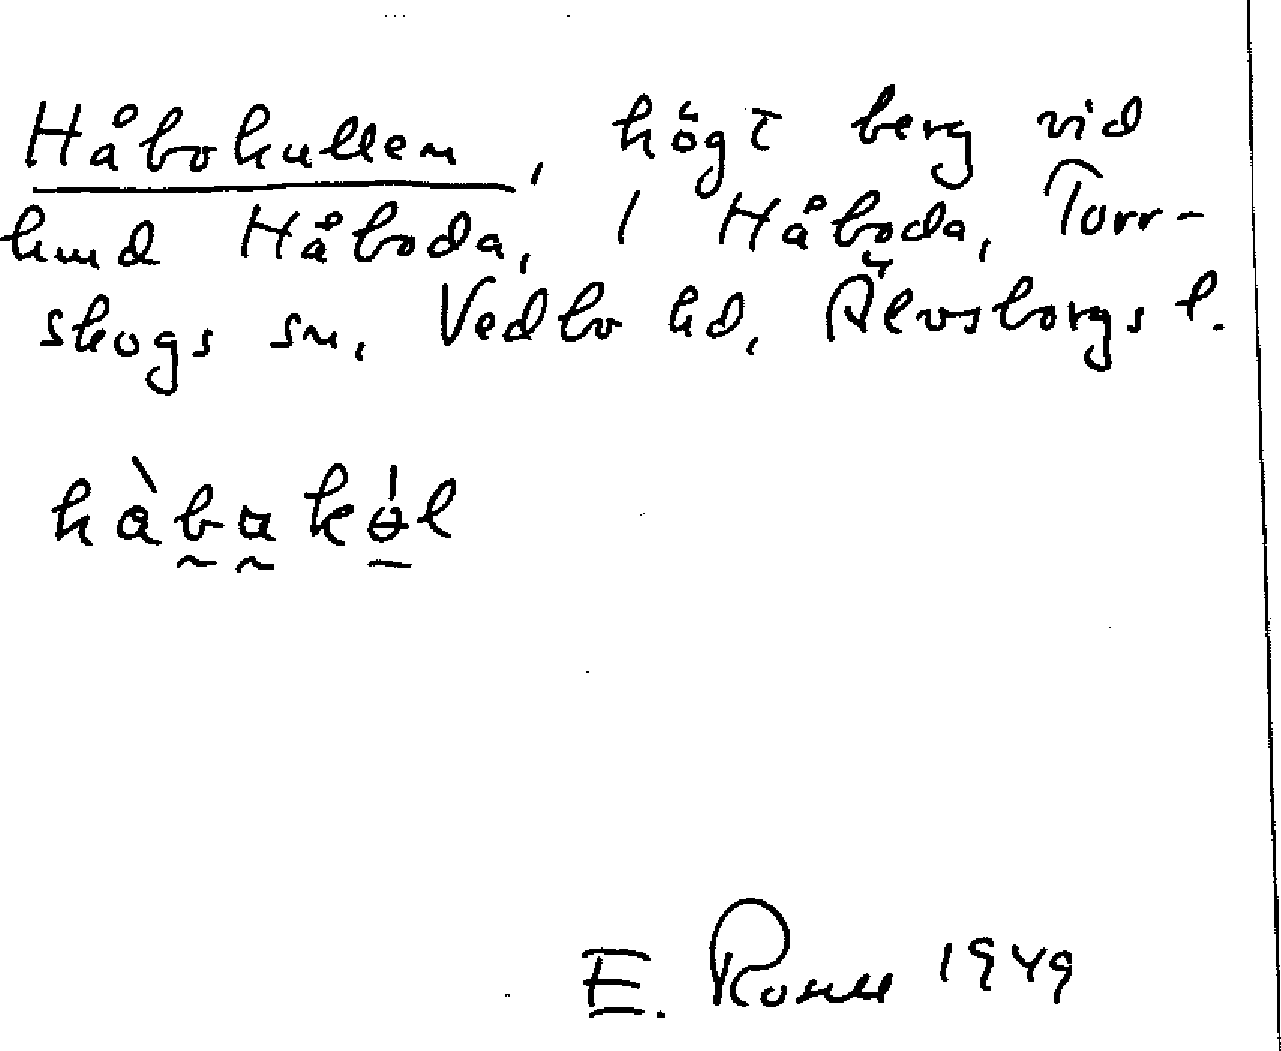 Håbokullen, högt berg vid
hmd Håboda, i Håboda, Torr-
skogs sn, Vedbo hd, Älvsborgs l.
E. 1949